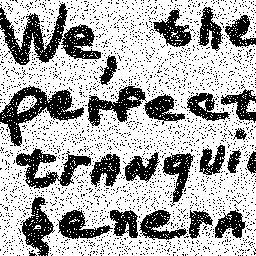 We, the
perfect
tranqui
genera